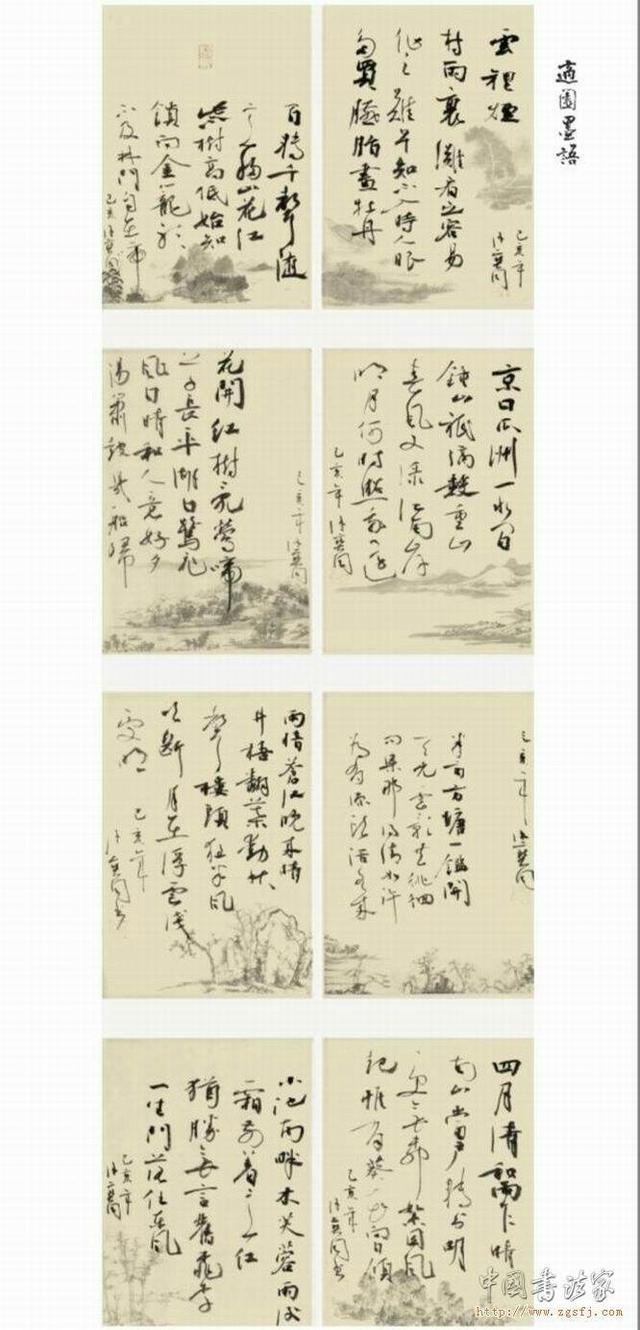 適園墨語
雲裡煙
村雨裏灘看之容易
作之難早知不入時人眼
多買臙脂畫牡丹
己亥年
百囀千聲隨
意移山花紅
紫樹高低始知
鎖向金籠聽
不及林間自在啼
己亥
京口瓜洲一水間
鐘山祇隔數重山
春風又綠江南岸
明月何時照我還
己亥年
己亥年
花開紅樹亂鶯啼
草長平湖白鷺飛
風日晴和人意好夕
陽簫鼓幾船歸
己亥年
半畝方塘一鑑開
天光雲影共徘徊
問渠那得清如許
為有源頭活水來
雨暗蒼江晚未晴
井梧翻葉動秋
聲樓頭夜半風
吹斷月在浮雲淺
處明
己亥年
四月清和雨乍晴
南山當戶轉分明
更無柳絮因風
起惟有葵花向日傾
己亥年
小池南畔木芙蓉雨後
霜前着意紅
猶勝無言舊桃李
一生開落任東風
己亥年
中國書法家
http://www.zgsfj.com